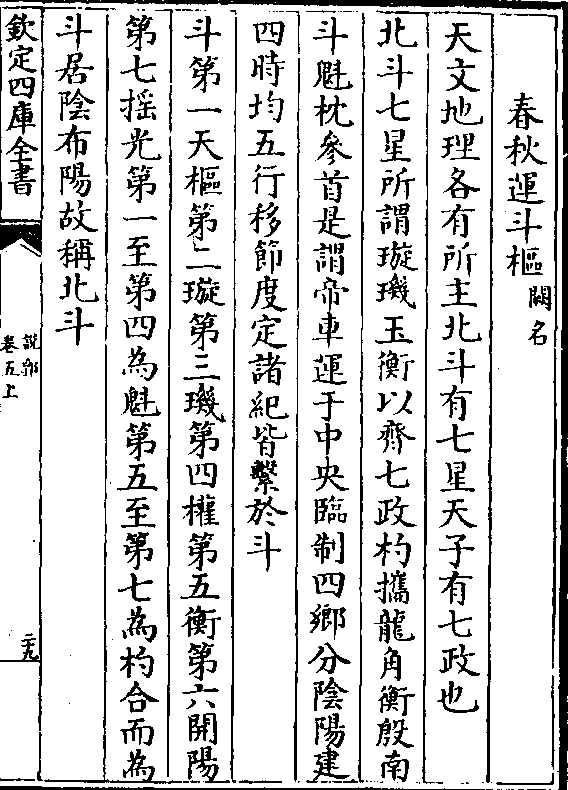 春秋運斗樞闕名
天文地理各有所主北斗有七星天子有七政也
北斗七星所謂璇璣玉衡以齊七政杓攜龍角衡殷南
斗魁枕參首是謂帝車運于中央臨制四鄉分陰陽建
四時均五行移節度定諸紀皆繫於斗
斗第一天樞第二璇第三璣第四權第五衡第六開陽
第七搖光第一至第四為魁第五至第七為杓合而為
斗居陰布陽故稱北斗
欽定四庫全書
說郛
卷五上
二九